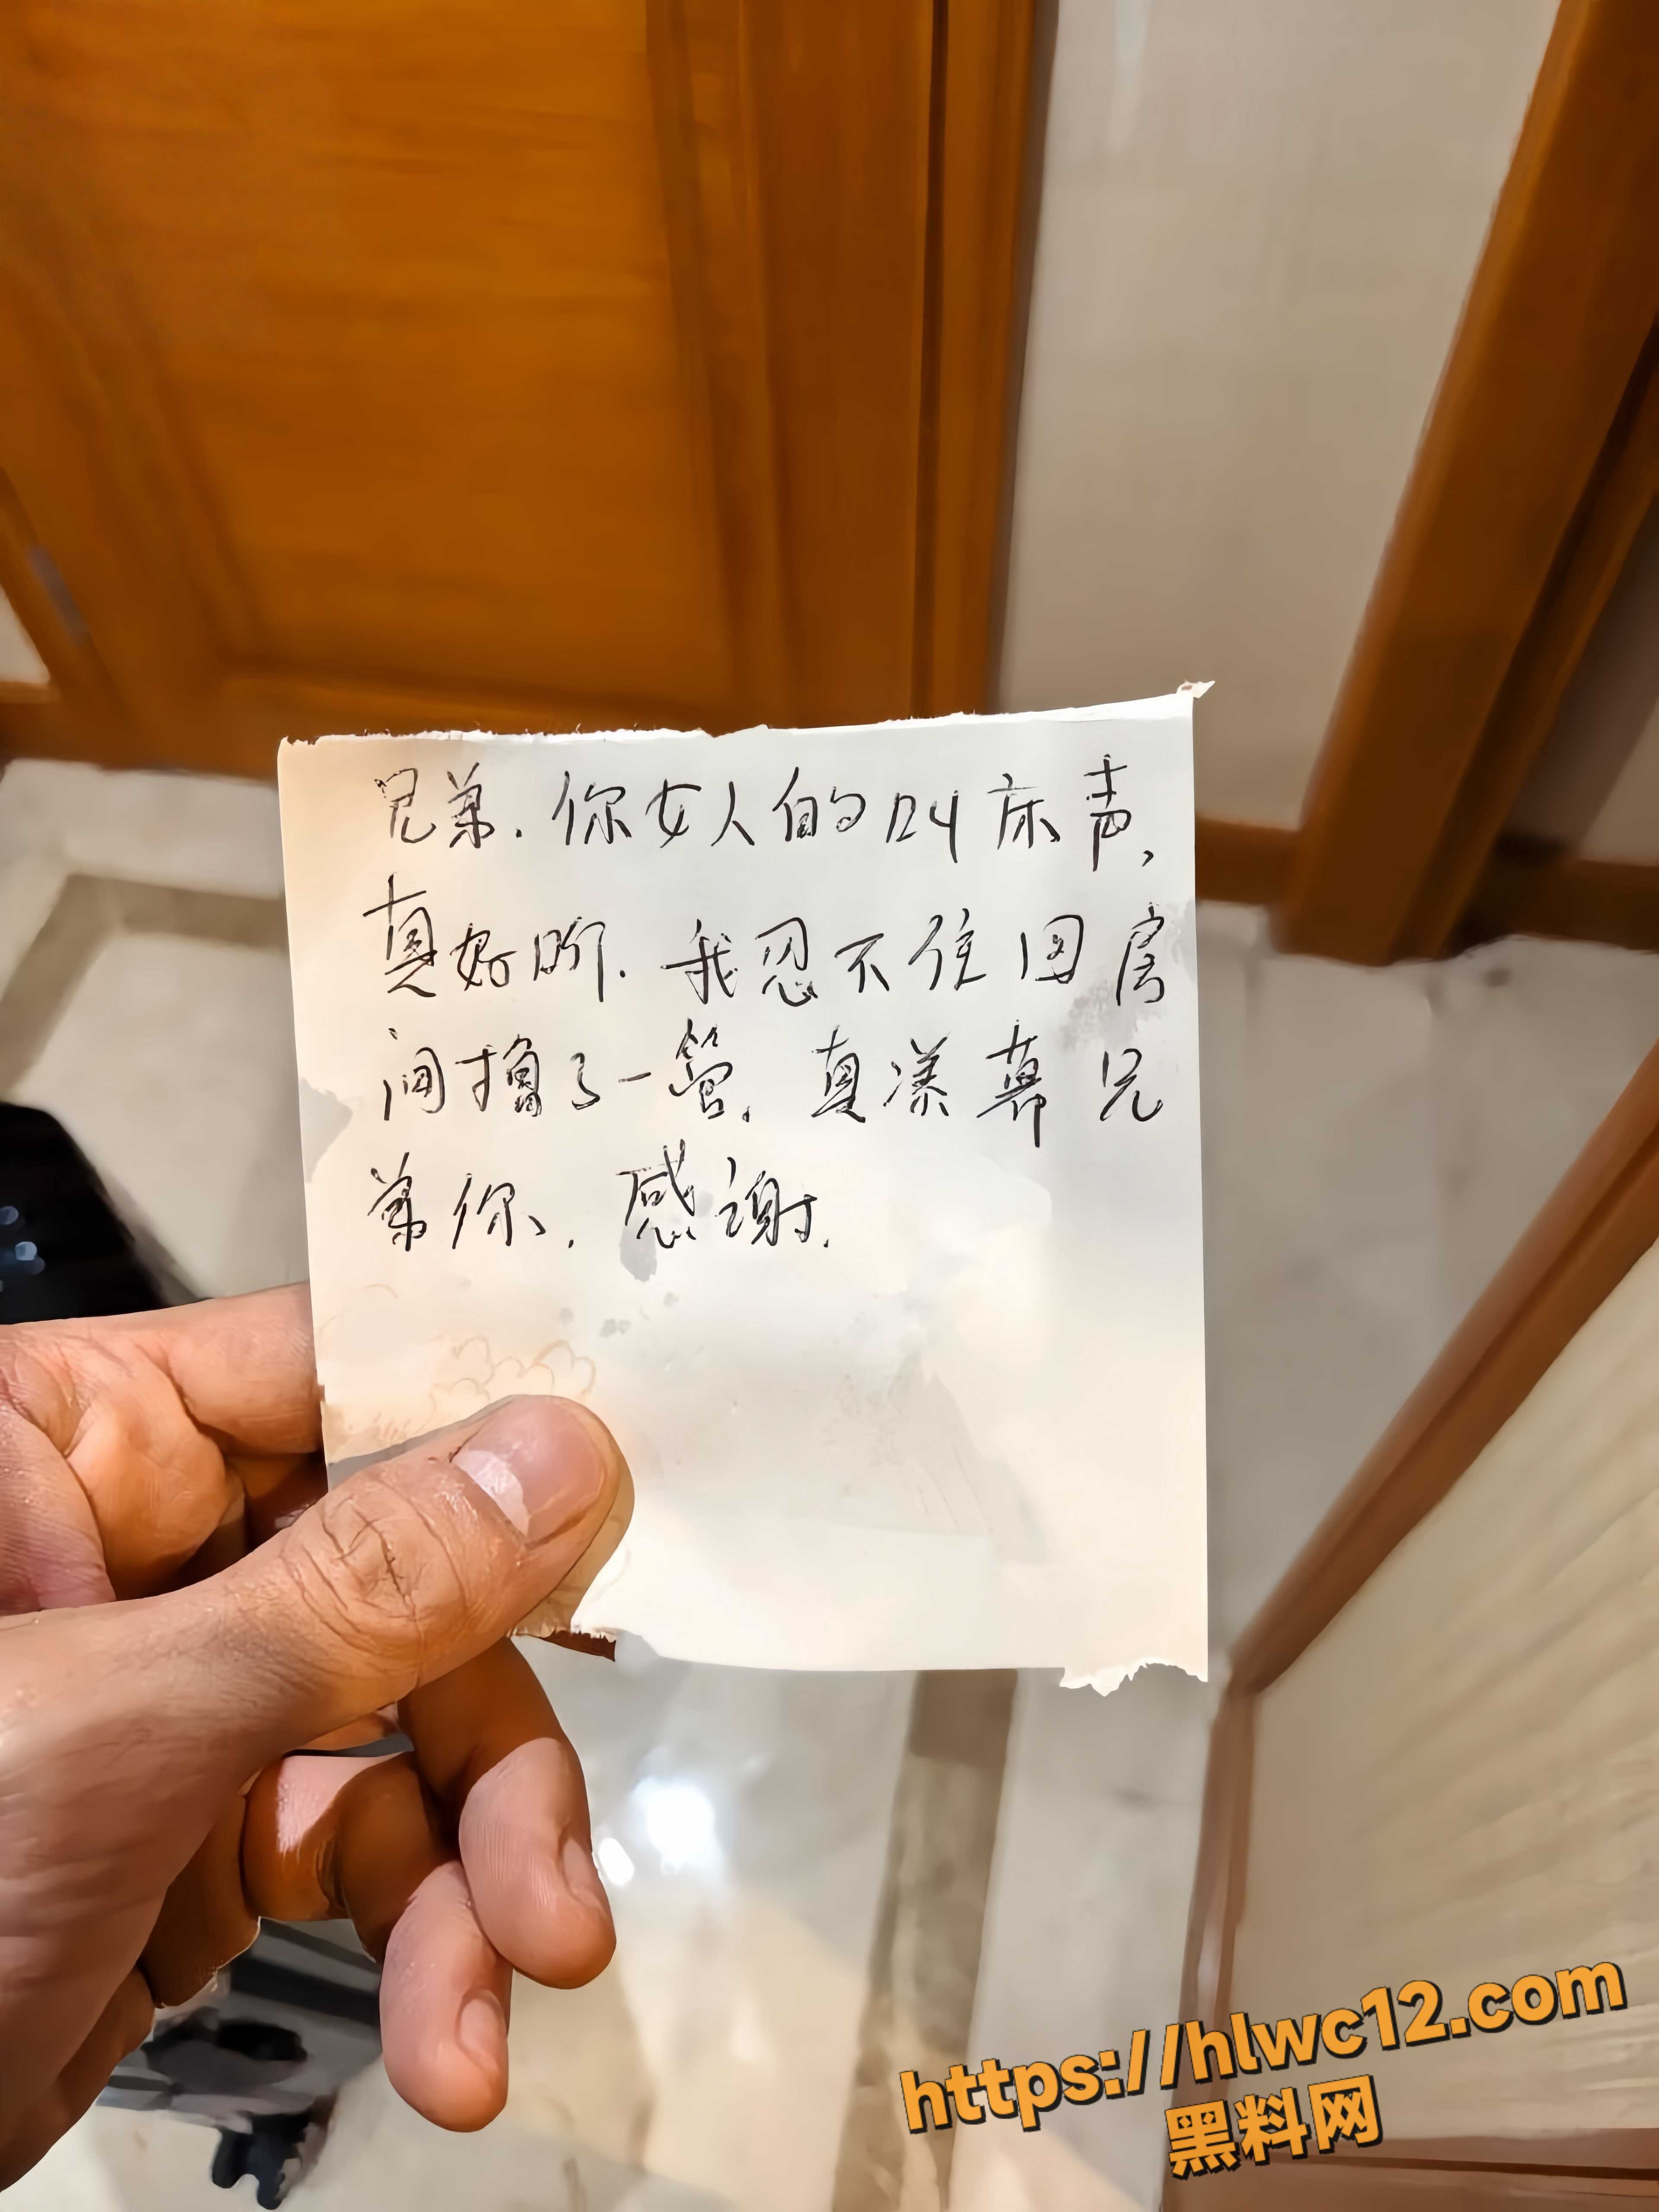 兄弟.你女人的叫床声,
真好听.我忍不住回房
间撸了一管.真漾慕兄
弟你.感谢.
https://hlwc12.com
黑料网